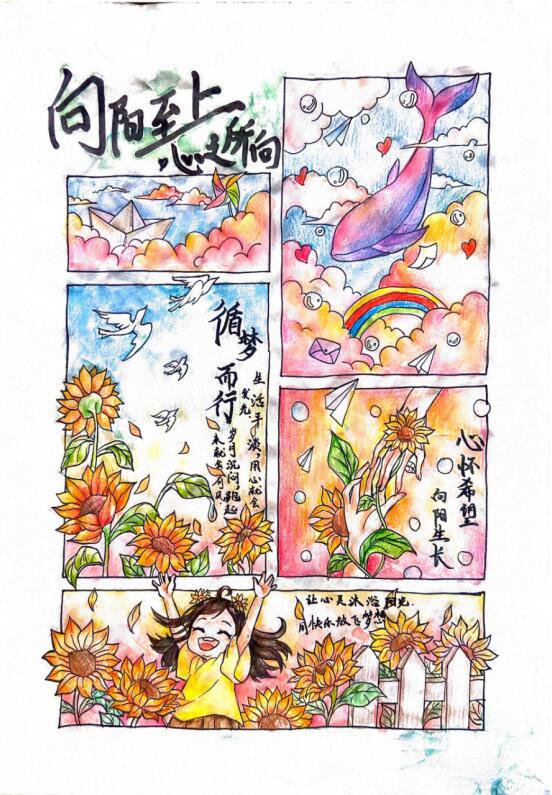 向阳至上
心之所向
循梦
而行
生活平淡,用心就会
发光
岁月沉闷,跑起
来就会有风
心怀希望
向阳生长
让心灵沐浴阳光.
用快乐放飞梦想